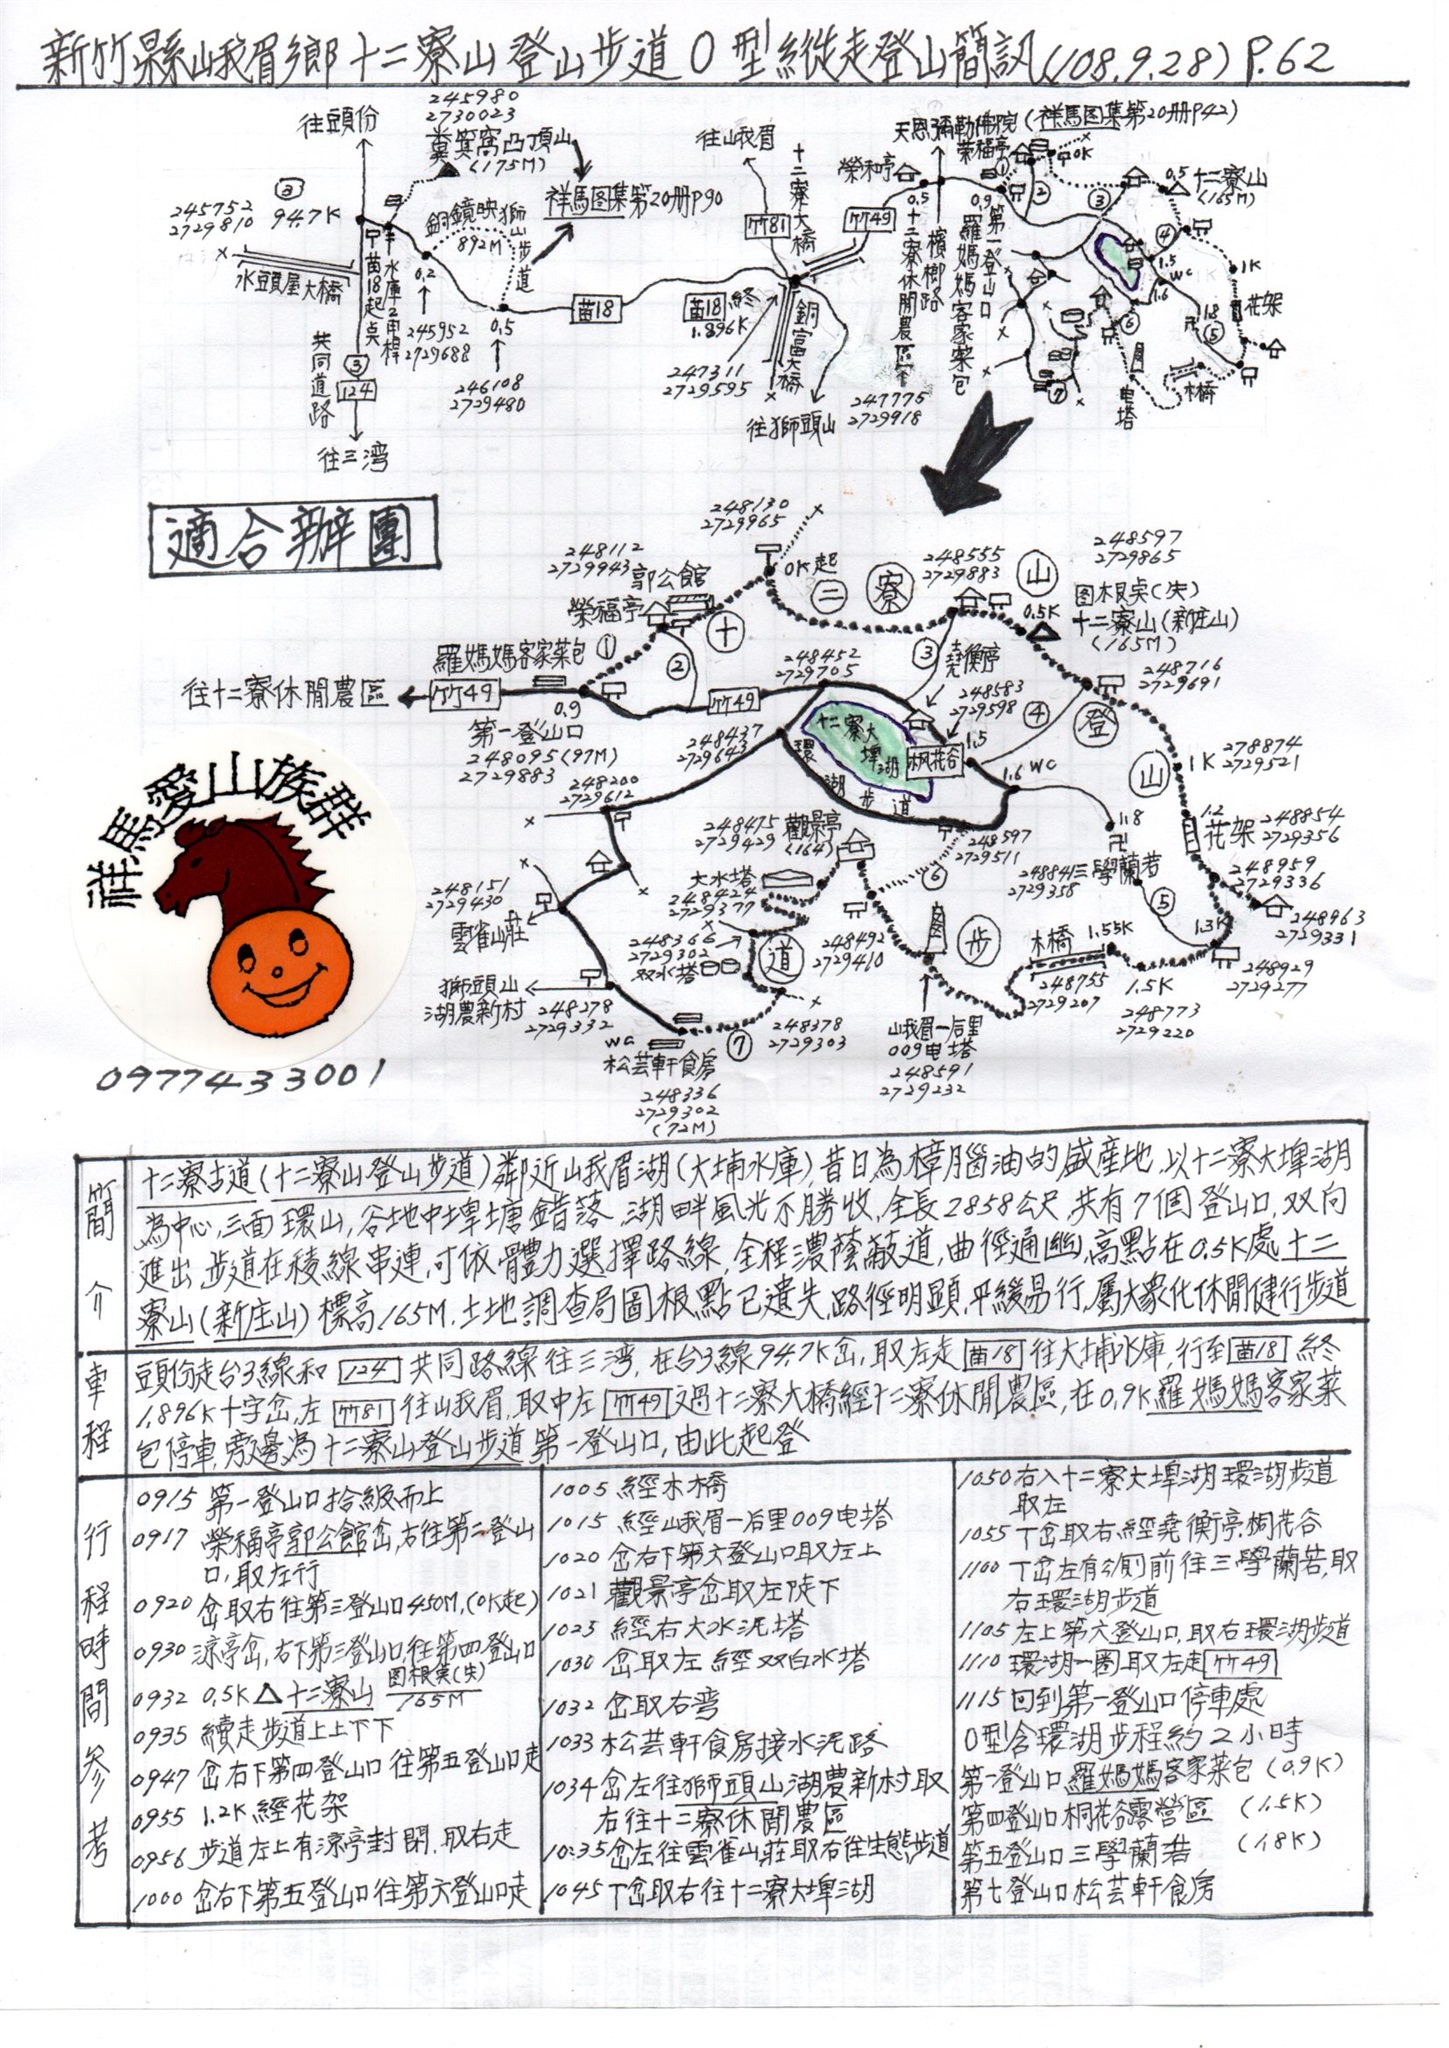 新竹縣峨眉鄉十二寮山登山步道O型縱走登山簡訊(108.9.28) P.62
往頭份
245980
2730023
糞箕窩凸頂山
(175M)
祥馬图集第20册P90
245752
2729810
③
94.7K
水頭屋大橋
苗18起点
水庫2雨桿
銅鏡映獅山步道
892M
0.2
245952
2729688
0.5
246108
2729480
共同道路
③
124
往三湾
苗18
苗18終
1.896K
往峨眉
竹81
十二寮大橋
竹49
247311
2729595
銅富大橋
往獅頭山
榮和亭
0.5
十二寮休閒農區
247775
2729918
天恩彌勒佛院
(祥馬图集第20册P42)
檳榔路
榮福亭
0.9
第一登山口
羅媽媽客家菜包
①
②
0K
③
0.5
十二寮山
(165M)
④
1.5
WC
1.6
1K
花架
1.8
卍
⑤
⑥
⑦
木橋
电塔
適合辦團
248130
2729965
0K起
248112
2729943
郭公館
榮福亭
羅媽媽客家菜包
①
②
往十二寮休閒農區
竹49
0.9
第一登山口
248095(97M)
2729883
竹49
十二寮山登山步道
248555
2729883
248597
2729865
图根点(失)
0.5K
十二寮山(新庄山)
(165M)
③
堯衡亭
248452
2729705
248583
2729598
④
248716
2729691
248437
2729643
十二寮大埤湖
環湖步道
枫花谷
1.5
1.6 WC
1K
278874
2729521
1.2
花架
248854
2729356
248959
2729336
248963
2729331
1.8
卍
248841三學蘭若
2729358
⑤
1.3K
248929
2729277
248200
2729612
248475
2729429
觀景亭
(164)
248597
2729511
⑥
大水塔
248424
2729377
248151
2729430
雲雀山莊
248366
2729302
双水塔
248492
2729410
木橋
1.55K
248755
2729207
1.5K
248773
2729220
獅頭山
湖農新村
248278
2729332
WC
松芸軒食房
248336
2729302
(72M)
⑦
248378
2729303
峨眉一后里
009电塔
248591
2729232
祥馬愛山族群
0977433001
簡介
十二寮古道(十二寮山登山步道)鄰近峨眉湖(大埔水庫),昔日為樟腦油的盛產地,以十二寮大埤湖
為中心,三面環山,谷地中埤塘錯落,湖畔風光不勝收,全長2858公尺,共有7個登山口,双向
進出,步道在稜線串連,可依體力選擇路線,全程濃蔭蔽道,曲徑通幽,高點在0.5K處十二
寮山(新庄山)標高165M,土地調查局圖根點已遺失,路徑明顯,平緩易行,屬大衆化休閒健行步道
車程
頭份走台3線和 124 共同路線往三湾,在台3線94.7K岔,取左走 苗18 往大埔水庫,行至 苗18 終
1.896K十字岔,左 竹81 往峨眉,取中左 竹49 过十二寮大橋經十二寮休閒農區,在0.9K羅媽媽客家菜
包停車,旁邊為十二寮山登山步道第一登山口,由此起登
行程時間參考
0915 第一登山口拾級而上
0917 榮福亭郭公館岔,右往第二登山
口,取左行
0920 岔取右往第三登山口450M,(0K起)
0930 涼亭岔,右下第三登山口,往第四登山口
0932 0.5K△十二寮山 图根点(失) 165M
0935 續走步道上上下下
0947 岔右下第四登山口往第五登山口走
0955 1.2K經花架
0956 步道左上有涼亭封閉,取右走
1000 岔右下第五登山口往第六登山口走
1005 經木橋
1015 經峨眉一后里009电塔
1020 岔右下第六登山口取左上
1021 觀景亭岔取左陡下
1025 經右大水泥塔
1030 岔取左經双白水塔
1032 岔取右弯
1033 松芸軒食房接水泥路
1034 岔左往獅頭山湖農新村取
右往十二寮休閒農區
10:35 岔左往雲雀山莊取右往生態步道
1045 丁岔取右往十二寮大埤湖
1050 右入十二寮大埤湖環湖步道
取左
1055 丁岔取右經堯衡亭.桐花谷
1100 丁岔左有公厠前往三學蘭若,取
右環湖步道
1105 左上第六登山口,取右環湖步道
1110 環湖一圈取左走 竹49
1115 回到第一登山口停車處
O型含環湖步程約2小時
第一登山口羅媽媽客家菜包 (0.9K)
第四登山口桐花谷露營區 (1.5K)
第五登山口三學蘭若 (1.8K)
第七登山口松芸軒食房